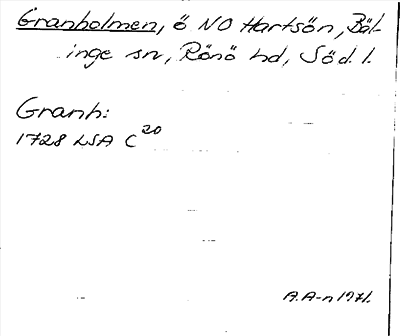 Granholmen, ö NO Hartsön, Bäl-
inge sn, Rönö hd, Söd. l.
Granh:
1728 LSA C20
A.A-n 1971.